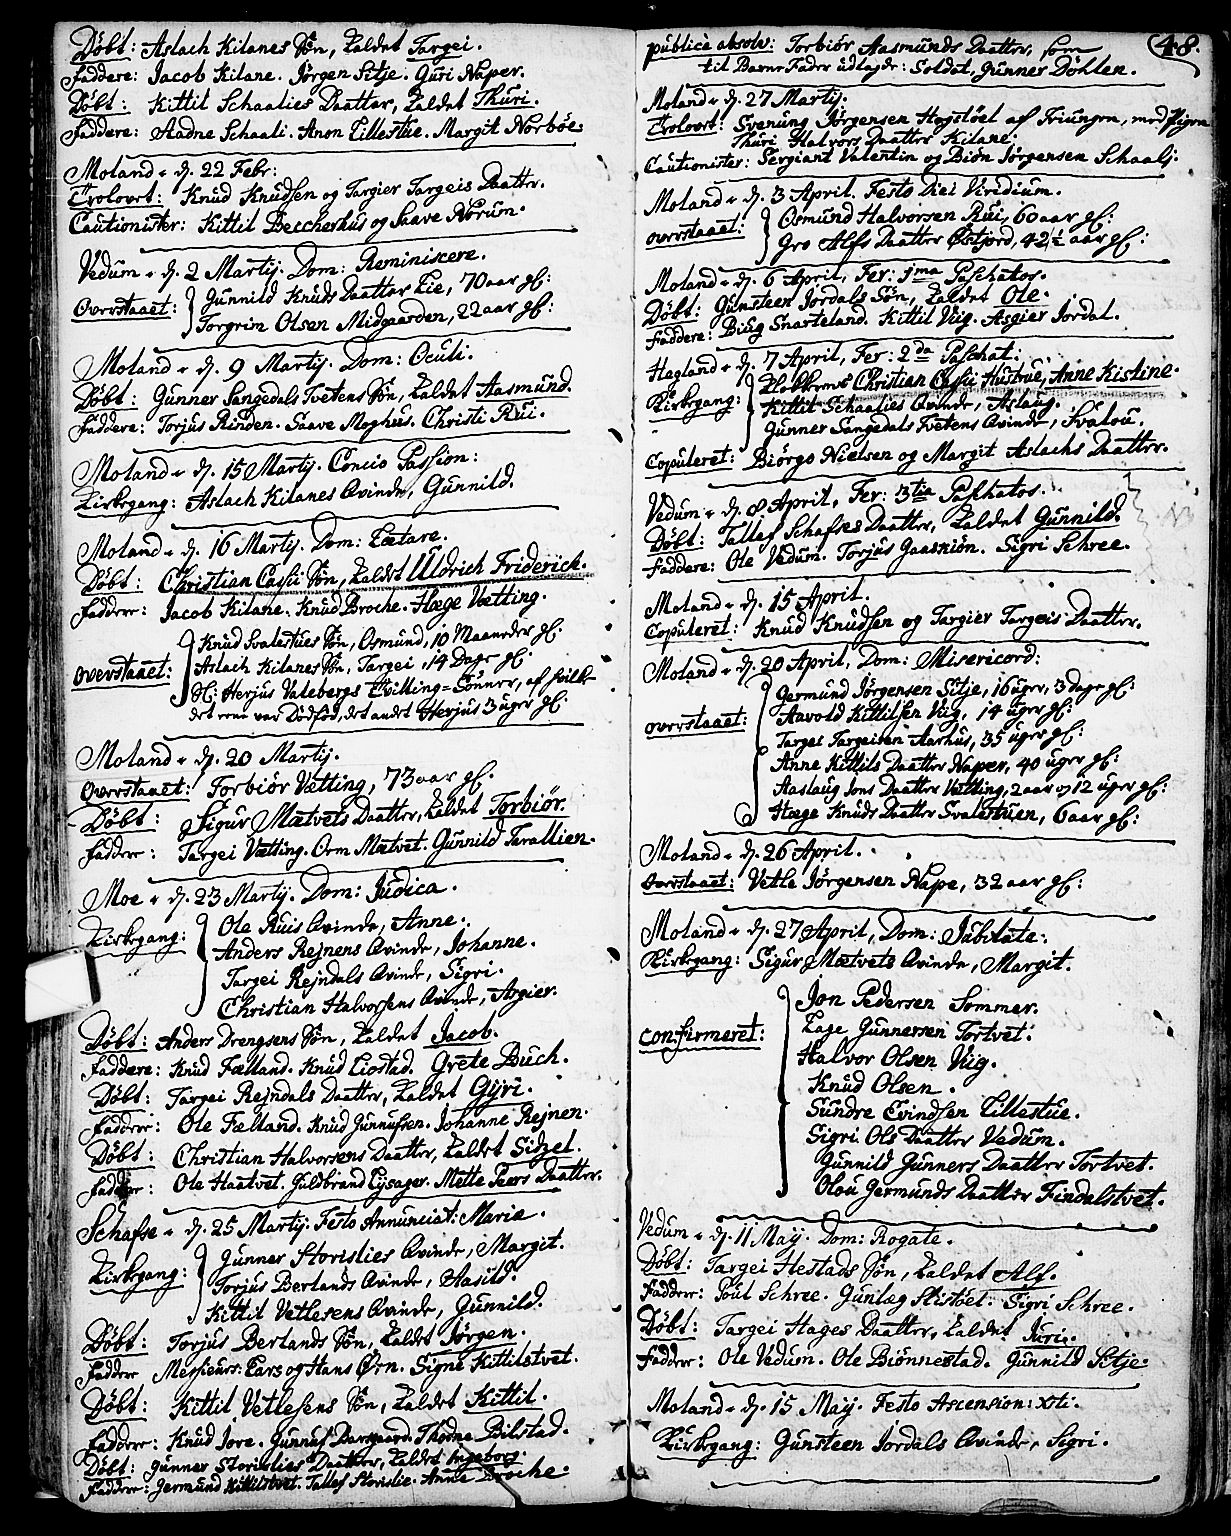 Døbt: Aslach Kilanes Søn, kaldet Targei.
Faddere: Jacob Kilane. Jørgen Sitje. Guri Naper.
Døbt: Kittil Schaalies Daatter, kaldet Thuri.
Faddere: Aadne Schaali. Anon Lillestue. Margit Norbøe.
Moland d. 22 Febr:
Trolovet: Knud Knudsen og Targier Targeis Daatter.
Cautionister: Kittil Beccherhus og Saave Norum.
Vedum d. 2 Martij. Dom: Reminiscere.
Overstaaet: Gunnild Knuds Daatter Lie, 70 aar gl:
Torgrim Olsen Midgaarden, 22 aar gl:
Moland d. 9 Martij. Dom: Oculi.
Døbt: Gunner Sangedals Tvetens Søn, kaldet Aasmund.
Faddere: Torjus Rinden. Saave Moghus. Christi Rui.
Moland d. 15 Martij. Concio Passion:
Kirkegang: Aslach Kilanes Qvinde, Gunnild.
Moland d. 16 Martij. Dom: Lætare.
Døbt: Christian Søn, kaldet Uldrich Friderich.
Faddere: Jacob Kilane. Knud Broche. Hæge Vetting.
overstaaet: Knud Svalestues Søn, Osmund, 10 Maaneder gl:
Aslach Kilanes Søn, Targei, 14 Dage gl:
Herjus Valebergs Tvilling-Sønner, af hvilk-
det eene var Dødfød, det andet Herjus 3 uger gl:
Moland d. 20 Martij.
Overstaaet: Torbiør Vetting, 73 aar gl.
Døbt: Sigur Mætvets Daatter, kaldet Torbiør.
Faddere: Targei Vetting. Orm Mætvet. Gunnild Tarallien.
Moe d. 23 Martij. Dom: Judica.
Kirkegang: Ole Ruis Qvinde, Anne.
Anders Rejnens Qvinde, Johanne.
Targei Rejndals Qvinde, Sigri.
Christian Halvorsens Qvinde, Asgier.
Døbt: Anders Drengsens Søn, kaldet Jacob.
Faddere: Knud Fælland. Knud Liostad. Grete Buch.
Døbt: Targei Rejndals Daatter, kaldet Gyri.
Faddere: Ole Fælland. Knud Gunnufsen. Johanne Rejnen.
Døbt: Christian Halvorsens Daatter, kaldet Sidzel.
Faddere: Ole Haatvet. Guldbrand Lysager. Mette Peers Daatter.
Schafse d. 25 Martij. Festo Annunciat: Mariæ.
Kirkegang: Gunner Storislies Qvinde, Margit.
Torjus Berlands Qvinde, Aasild.
Kittil Vetlesens Qvinde, Gunnild.
Døbt: Torjus Berlands Søn, kaldet Jørgen.
Faddere Messieurs: Lars og Hans Ørn. Signe Kittilstvet.
Døbt: Kittil Vetlesens Søn, kaldet Kittil.
Faddere: Knud Jore. Gunnuf Thorne Bilstad.
Døbt: Gunner Storislies Daatter, kaldet Ingeborg.
Faddere: Germund Kittilstvet. Tallef Storislie. Anne Broche.
48.
publicè absolv: Torbiør Aasmunds Daatter, som
til Barne Fader udlagde: Soldat, Gunner Døhlen.
Moland d. 27 Martij.
Trolovet: Svenung Jørgensen Høgstøel af Triungen, med Pigen
Thuri Halvors Daatter Kilane.
Cautionister: Sergiant Valentin og Biøn Jørgensen Schaalj.
Moland d. 3 April. Festo Diei Viridium.
overstaaet: Osmund Halvorsen Rui, 60 aar gl:
Gro Alfs Daatter Østjord, 42½ aar gl:
Moland d. 6 April, Fer: 1ma Paschatos.
Døbt: Gunsteen Jordals Søn, kaldet Ole.
Faddere: Biug Snarteland. Kittil Viig. Asgier Jordal.
Hagland d. 7 April, Fer: 2da Paschat:
Kirkegang: Klokkerens Christian Hustrue, Anne Kistine.
Kittil Schaalies Qvinde, Aslaug.
Gunner Sangedals Tvetens Qvinde, Svalou.
Copuleret: Biørgo Nielsen og Margit Aslachs Daatter.
Vedum d. 8 April, Fer: 3tia Paschatos.
Døbt: Tallef Schafses Daatter, kaldet Gunnild.
Faddere: Ole Vedum. Torjus Gaaskiøn. Sigri Schree.
Moland d. 15 April.
Copuleret: Knud Knudsen og Targier Targeis Daatter.
Moland d. 20 April, Dom: Misericord:
overstaaet: Germund Jørgensen Sitje, 16 uger, 3 dage gl:
Aavold Kittilsen Viig, 14 uger gl:
Targei Targeisen Aarhus, 35 uger gl:
Anne Kittils Daatter Naper, 40 uger gl:
Aaslaug Jons Daatter Vetting, 2 aar og 12 uger gl:
Hæge Knuds Daatter Svalestuen, 6 aar gl:
Moland d. 26 April.
Overstaaet: Vetle Jørgensen Nape, 32 aar gl:
Moland d. 27 April, Dom: Jubilate.
Kirkegang: Sigur Mætvets Qvinde, Margit.
confirmeret: Jon Pedersen Sommer.
Lage Gunnersen Tortvet.
Halvor Olsen Viig.
Knud Olsen.
Sundre Evindsen Lillestue.
Sigri Ols Daatter Vedum.
Gunnild Gunners Daatter Tortvet.
Olou Germunds Daatter Findalstvet.
Vedum d. 11 Maij. Dom: Rogate.
Døbt: Targei Hestads Søn, kaldet Alf.
Faddere: Poul Schree. Gunlæg Slistøel. Sigri Schree.
Døbt: Targei Hages Daatter, kaldet Juri.
Faddere: Ole Vedum. Ole Biønnestad. Gunnild Sitje.
Moland d. 15 Maij. Festo Ascension: xti.
Kirkegang: Gunsteen Jordals Qvinde, Sigri.